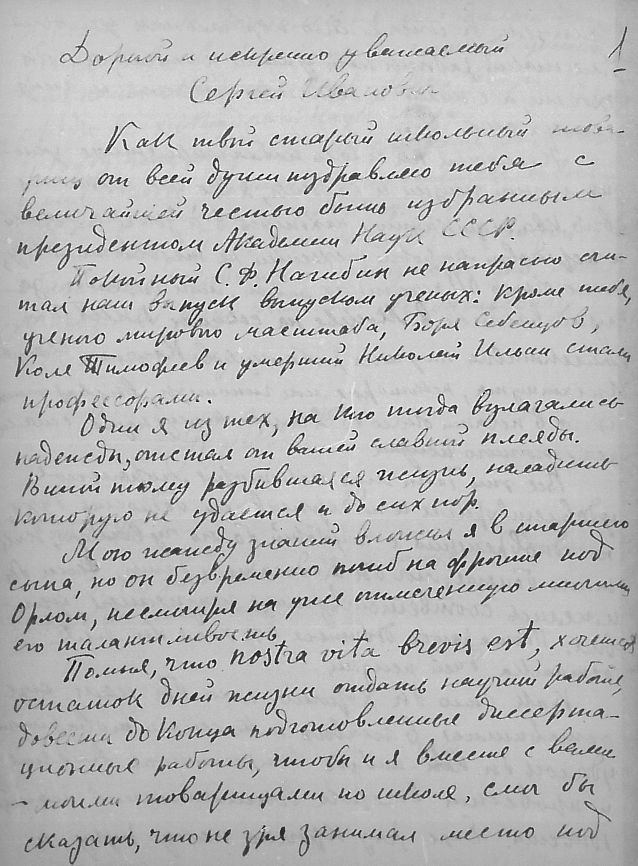 Дорогой и искренно уважаемый
1
Сергей Иванович
Как твой старый школьный това-
рищ от всей души поздравляю тебя с
величайшей честью быть избранным
президентом Академии Наук СССР.
Покойный С. Ф. Нагибин не напрасно счи-
тал наш выпуск выпуском ученых: кроме тебя,
ученого мирового масштаба, Боря
Коля Тимофеев и умерший Николай Ильин стали
профессорами.
Один я из тех, на кого тогда възлагались
надежды, отстал от вашей славной плеяды.
Виной тому разбившаяся жизнь, наладить
которую не удается и до сих пор.
Мою жажду знаний вложил я в старшего
сына, но он безвременно погиб на фронте под
Орлом, несмотря на уже отмеченную многими
его талантливость.
Помня, что nostra vita brevis est, хочется
остаток дней жизни отдать научной работе,
довести до конца подготовленные диссерта-
ционные работы, чтобы и я вместе с вами
- моими товарищами по школе, смог бы
сказать, что не зря занимал место под